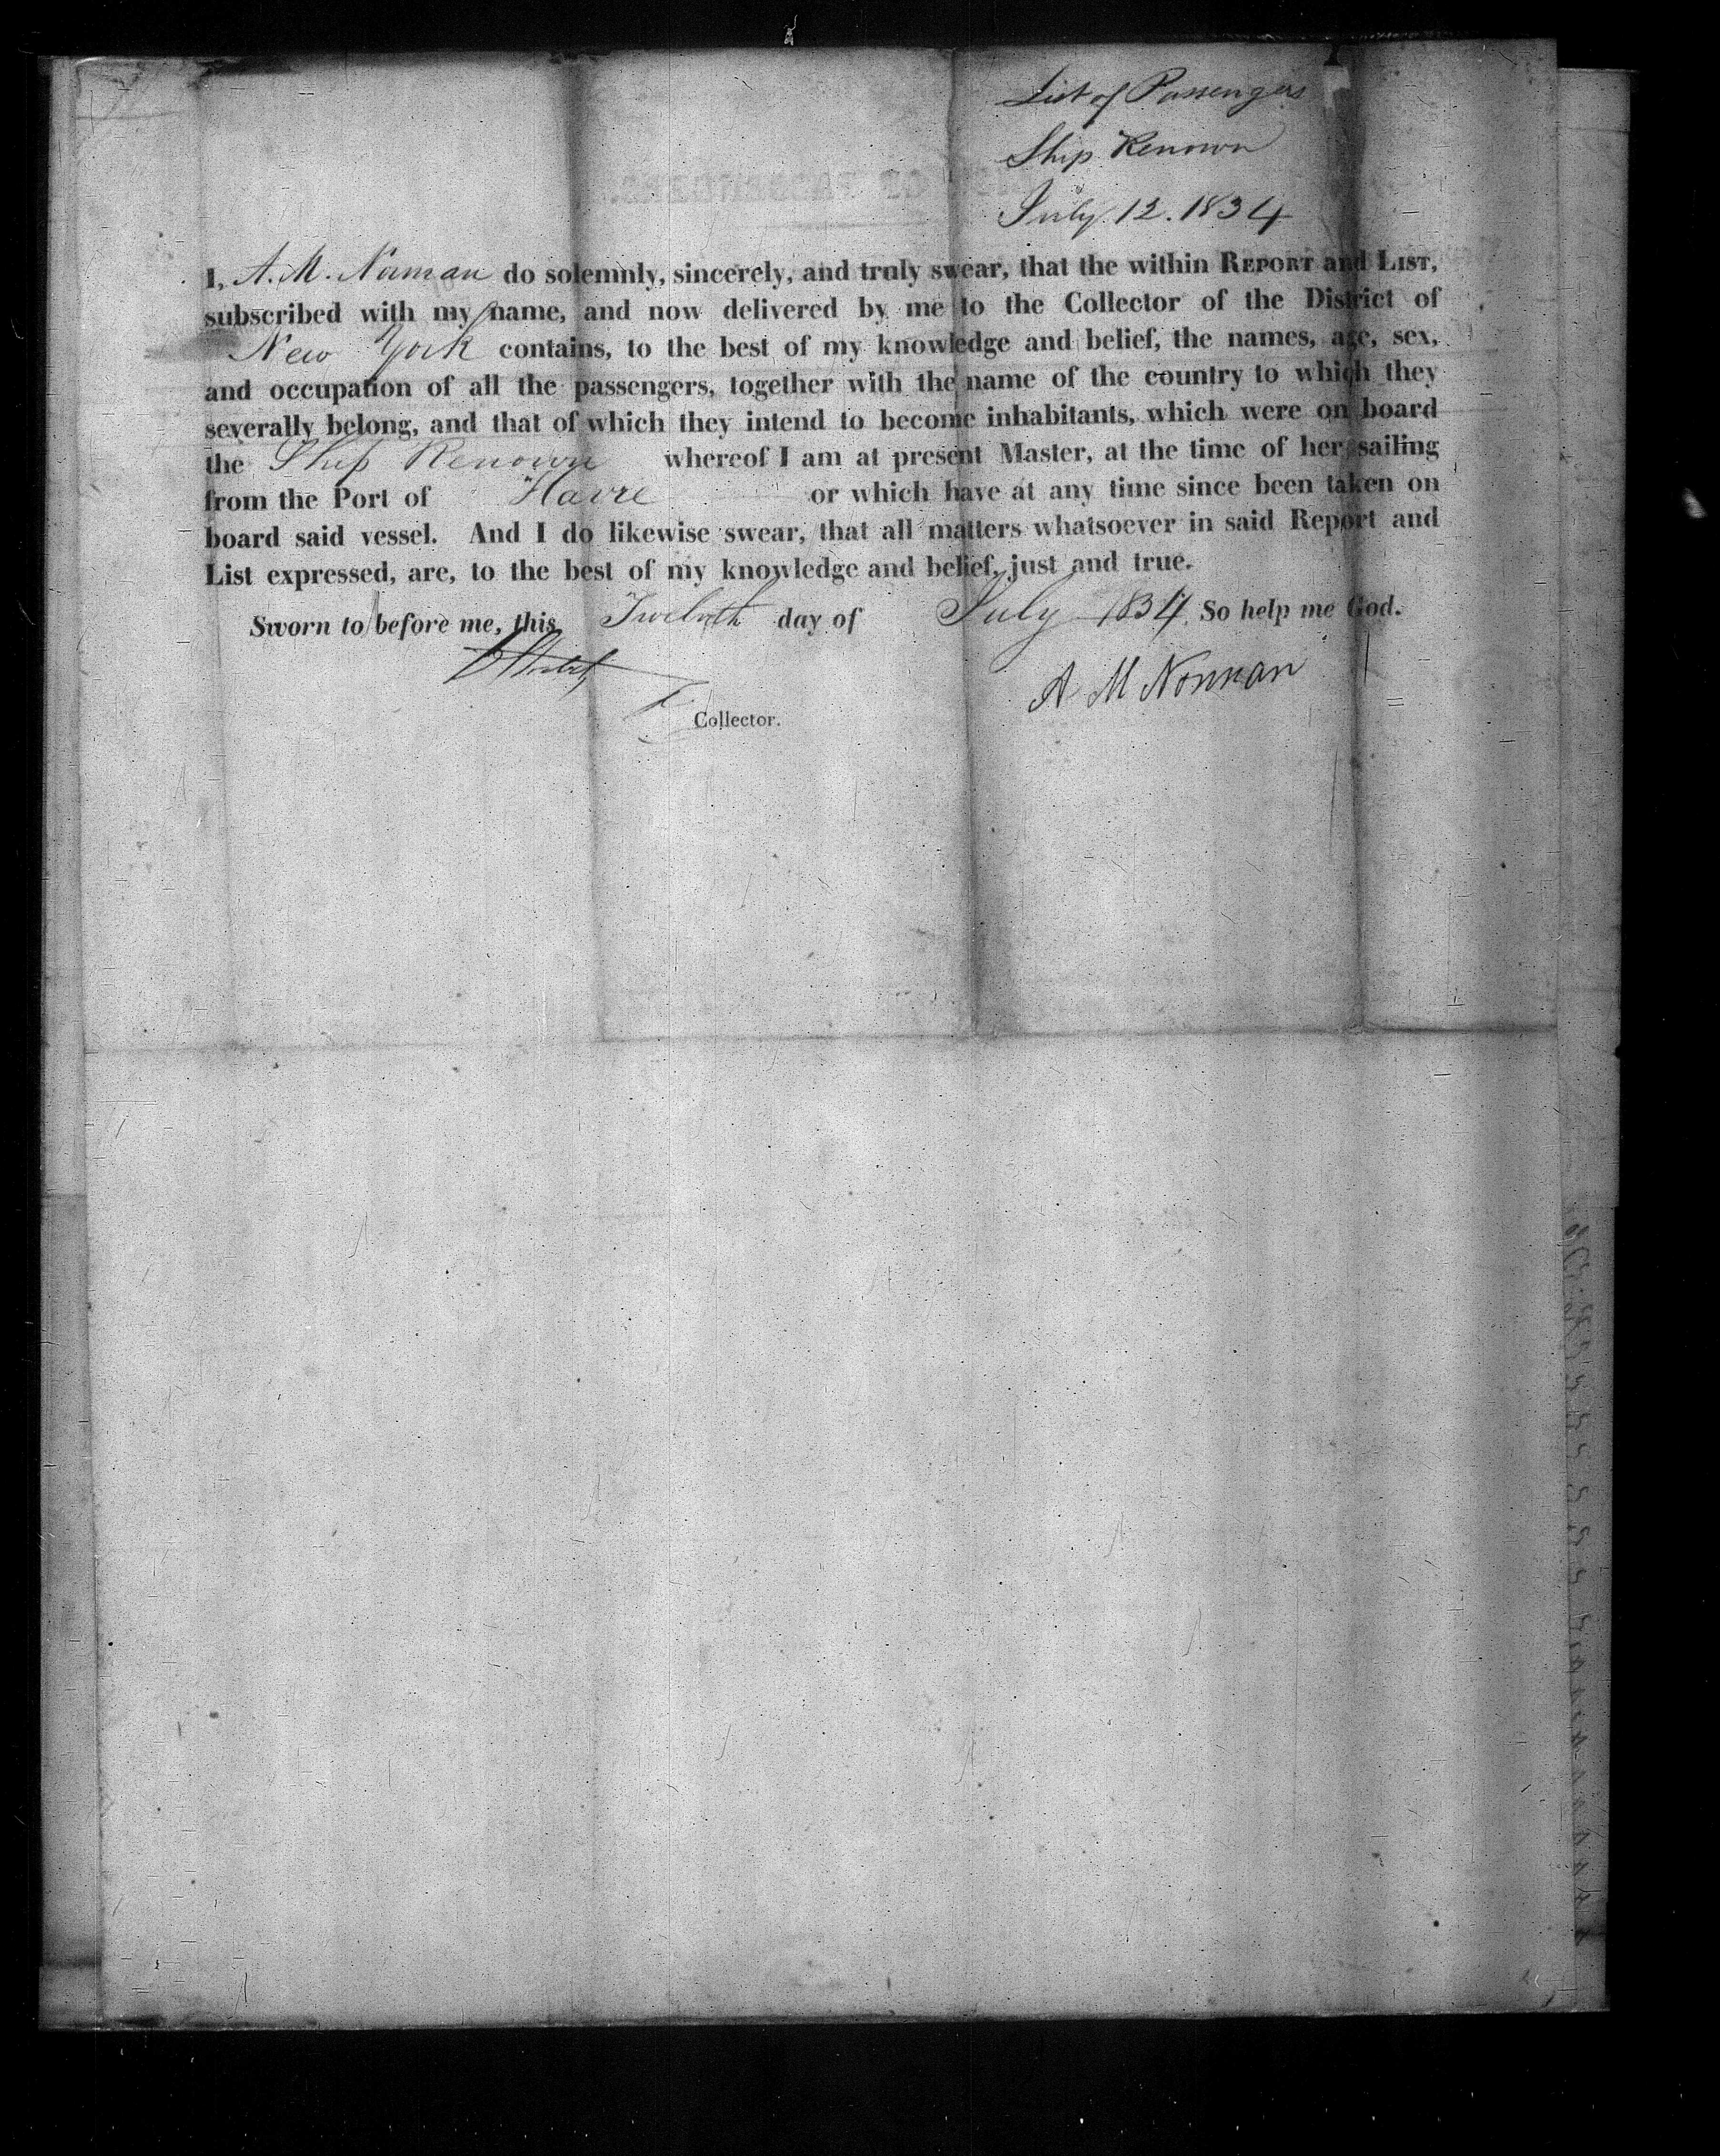 List of Passengers
Ship Renown
July 12. 1834
I, A. M. Norman do solemnly, sincerely, and truly swear, that the within REPORT and LIST,
subscribed with my name, and now delivered by me to the Collector of the District of
New York contains, to the best of my knowledge and belief, the names, age, sex,
and occupation of all the passengers, together with the name of the country to which they
severally belong, and that of which they intend to become inhabitants, which were on board
the Ship Renown whereof I am at present Master, at the time of her sailing
from the Port of Havre or which have at any time since been taken on
board said vessel. And I do likewise swear, that all matters whatsoever in said Report and
List expressed, are, to the best of my knowledge and belief, just and true.
Sworn to before me, this Twelvth day of July 1834. So help me God.
A M Norman
Collector.